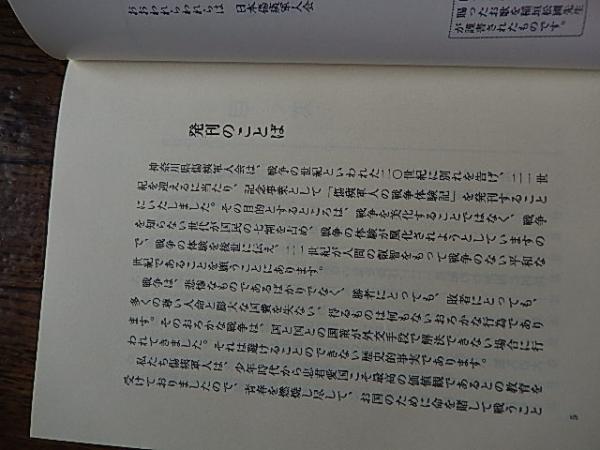 おおわれらわれらは　日本傷病軍人会
賜ったお歌を稲垣松圃先生
が謹書されたものです。
発刊のことば
神奈川県傷病軍人会は、戦争の世紀といわれた二〇世紀に別れを告げ、二一世
紀を迎えるに当たり、記念事業として「傷病軍人の戦争体験記」を発刊すること
にいたしました。その目的とするところは、戦争を美化することではなく、戦争
を知らない世代が国民の七割を占め、戦争の体験が風化されようとしていますの
で、戦争の体験を後世に伝え、二一世紀が人間の叡智をもって戦争のない平和な
世紀であることを願うことにあります。
戦争は、悲惨なものであるばかりでなく、勝者にとっても、敗者にとっても、
多くの尊い人命と膨大な国費を失ない、得るものは何もないおろかな行為であり
ます。そのおろかな戦争は、国と国との国策が外交手段で解決できない場合に行
われてきました。それは避けることのできない歴史的事実であります。
私たち傷病軍人は、少年時代から忠君愛国こそ最高の価値観であるとの教育を
受けておりましたので、青春を燃焼し尽して、お国のために命を賭して戦うこと
5